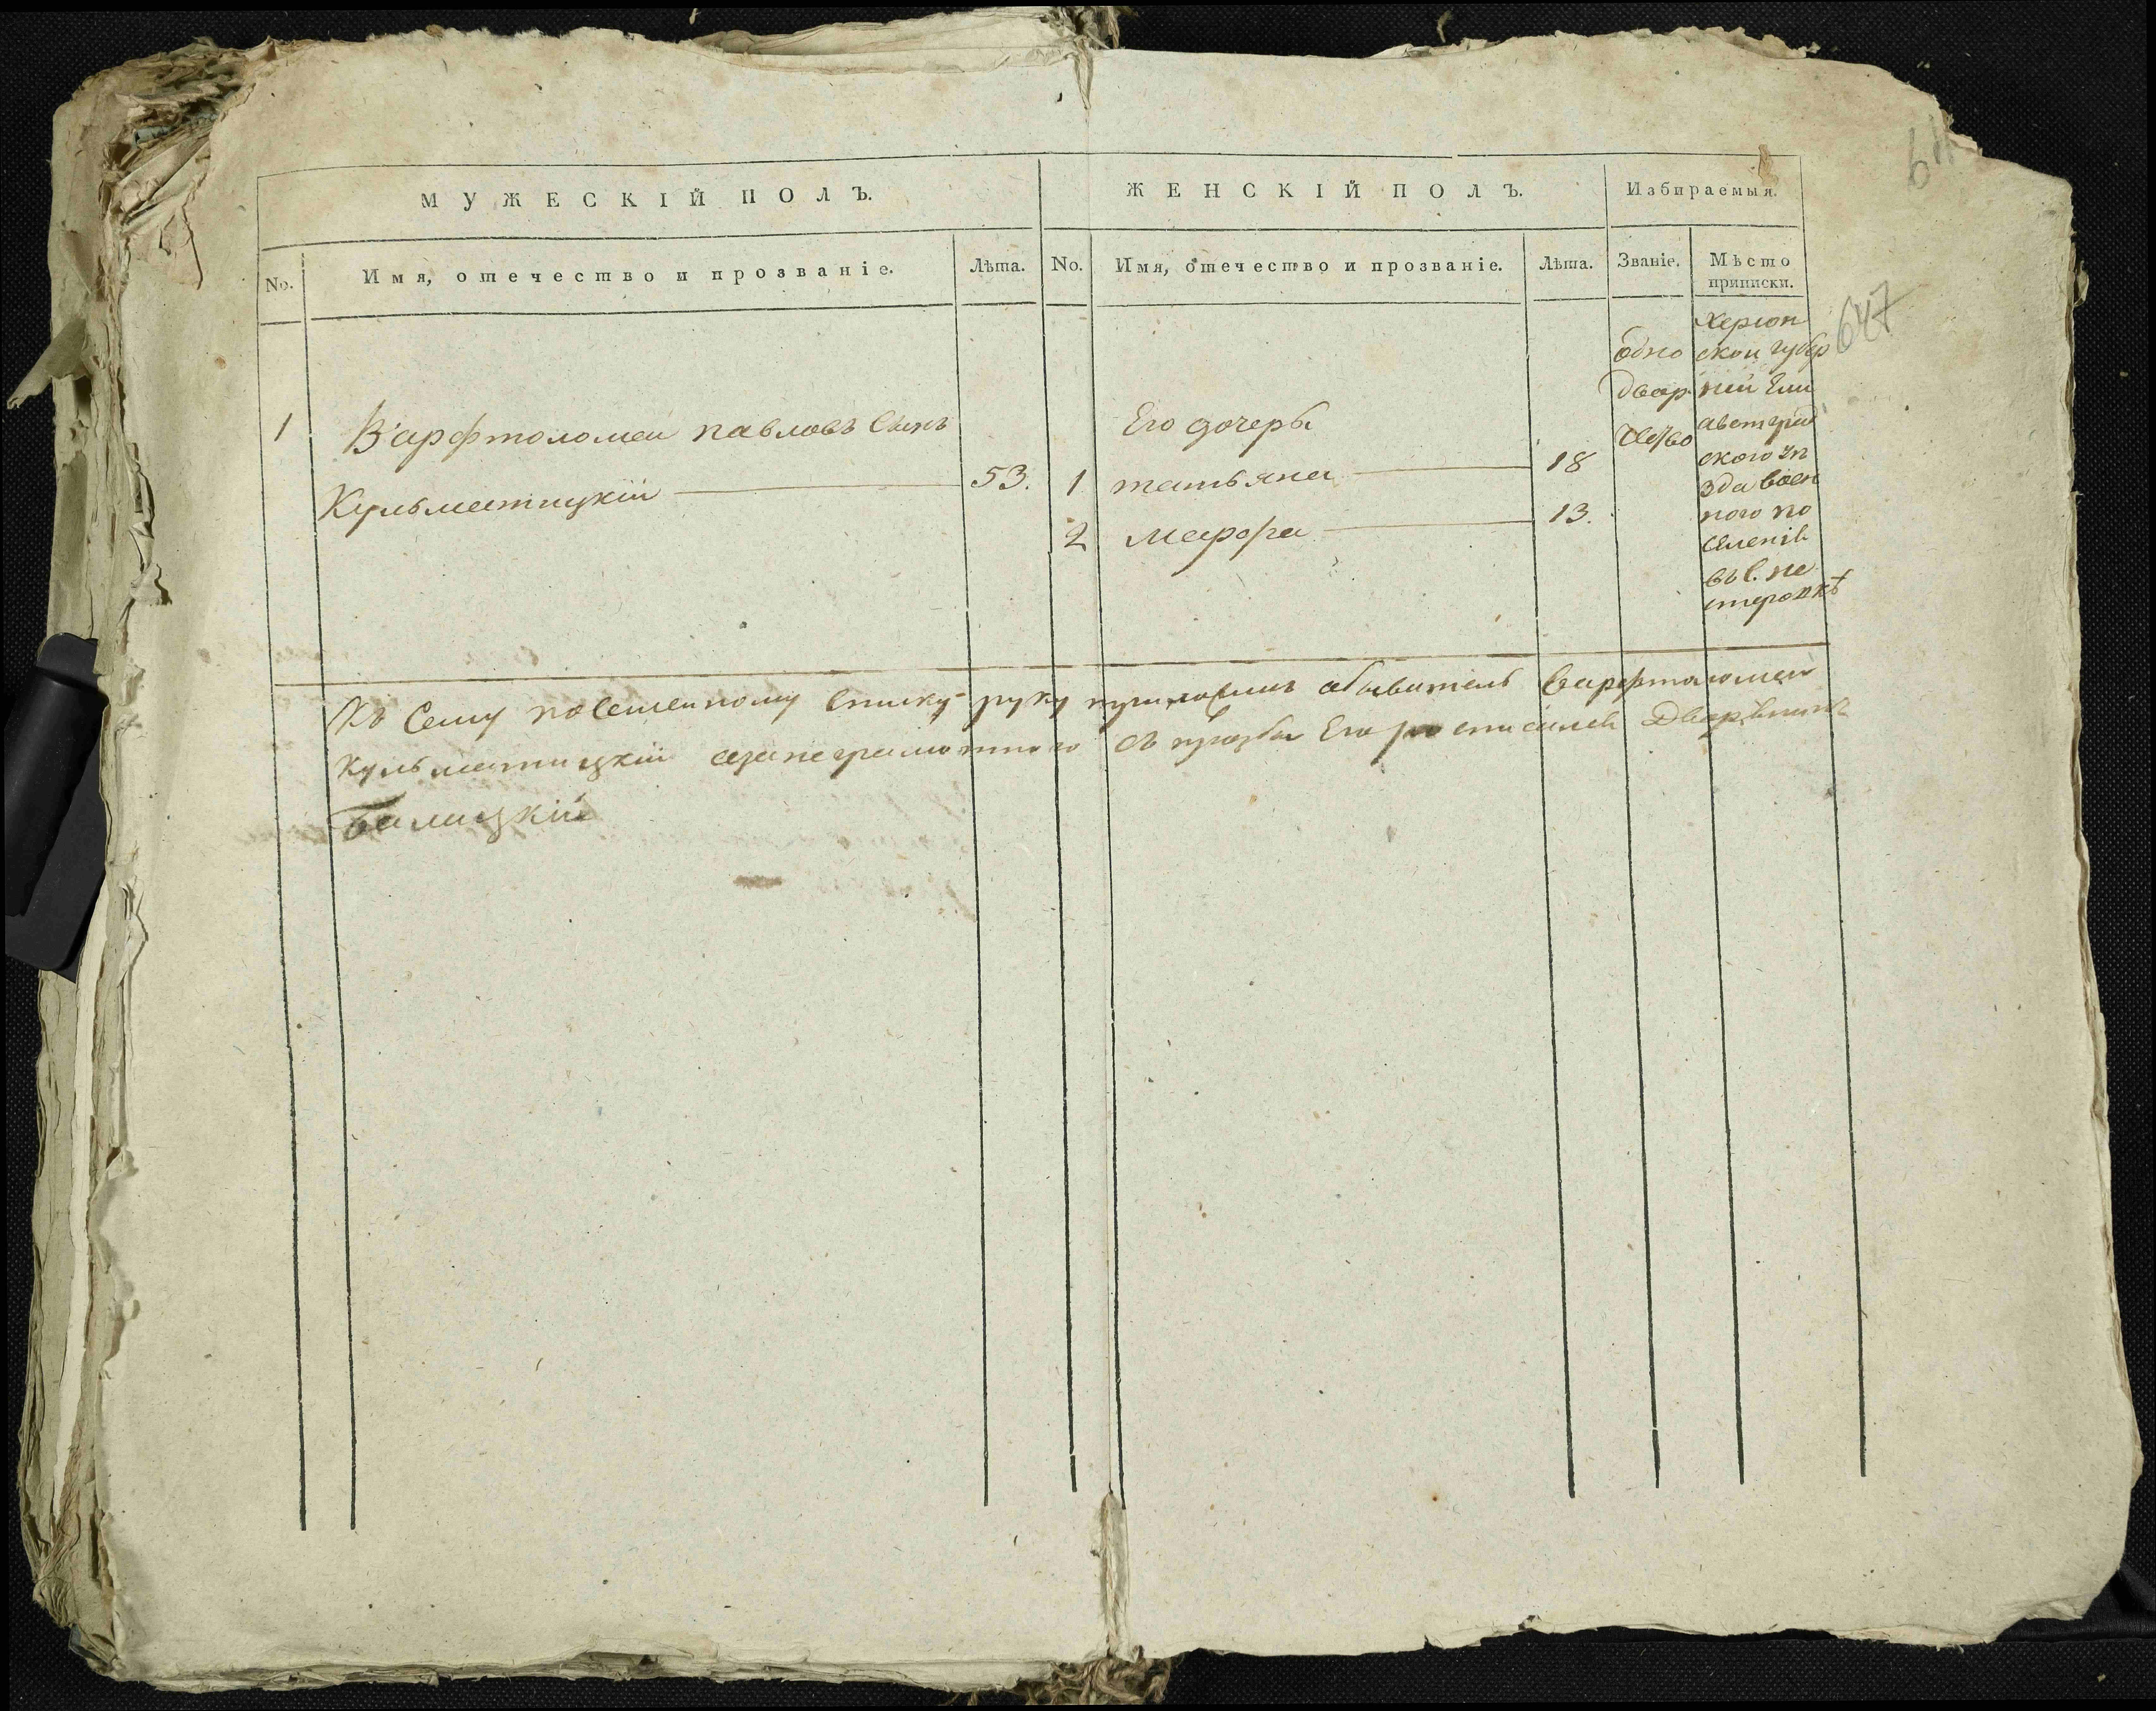 МУЖЕСКІЙ ПОЛЪ.
ЖЕНСКІЙ ПОЛЪ.
Избираемыя.
No.
Имя, отечество и прозваніе.
Лѣта.
No.
Имя, отечество и прозваніе.
Лѣта.
Званіе.
Мѣсто
приписки.
1
Варфтоломеи павловъ Сынъ
Кульматицкіи
53.
Его дочеры
1 татьяна 18
2 марфа 13.
одно
двор
Херсон
ской губер
ніи Ели
аветград
ского уп
зда воен
ного по
селенія
въ с. пе
стеровкѣ
К Сему посемейному списку руку приложилъ обыватель Варфтоломеи
Кульматицкіи азанеграмотного Съ прозбы Его росписался Дворѣнинъ
Балицкій
647